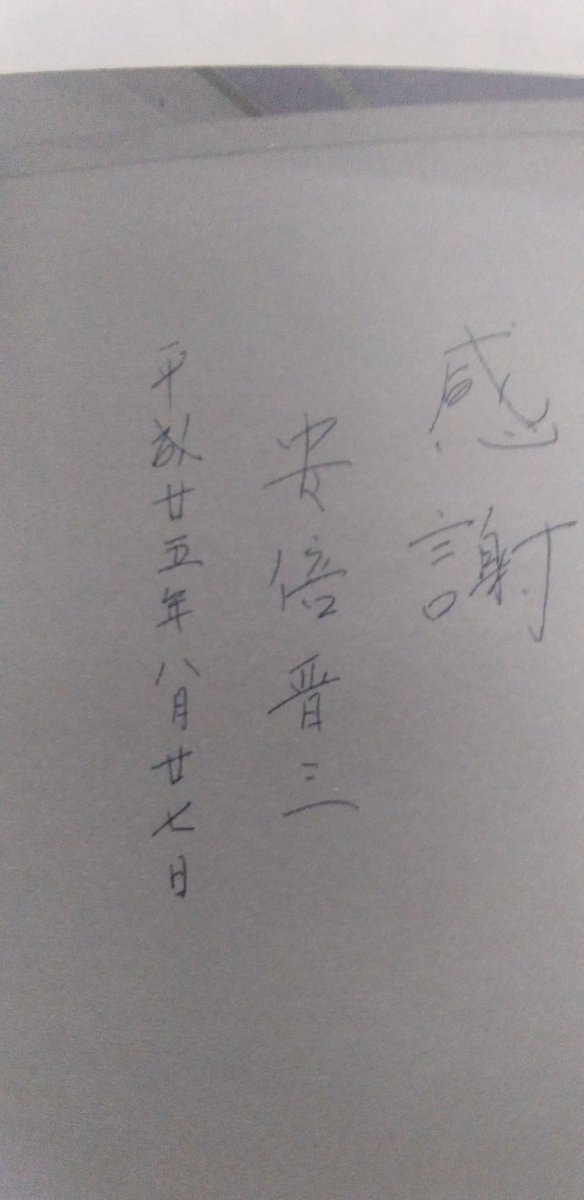 感謝
安倍晋三
平成廿五年八月廿七日